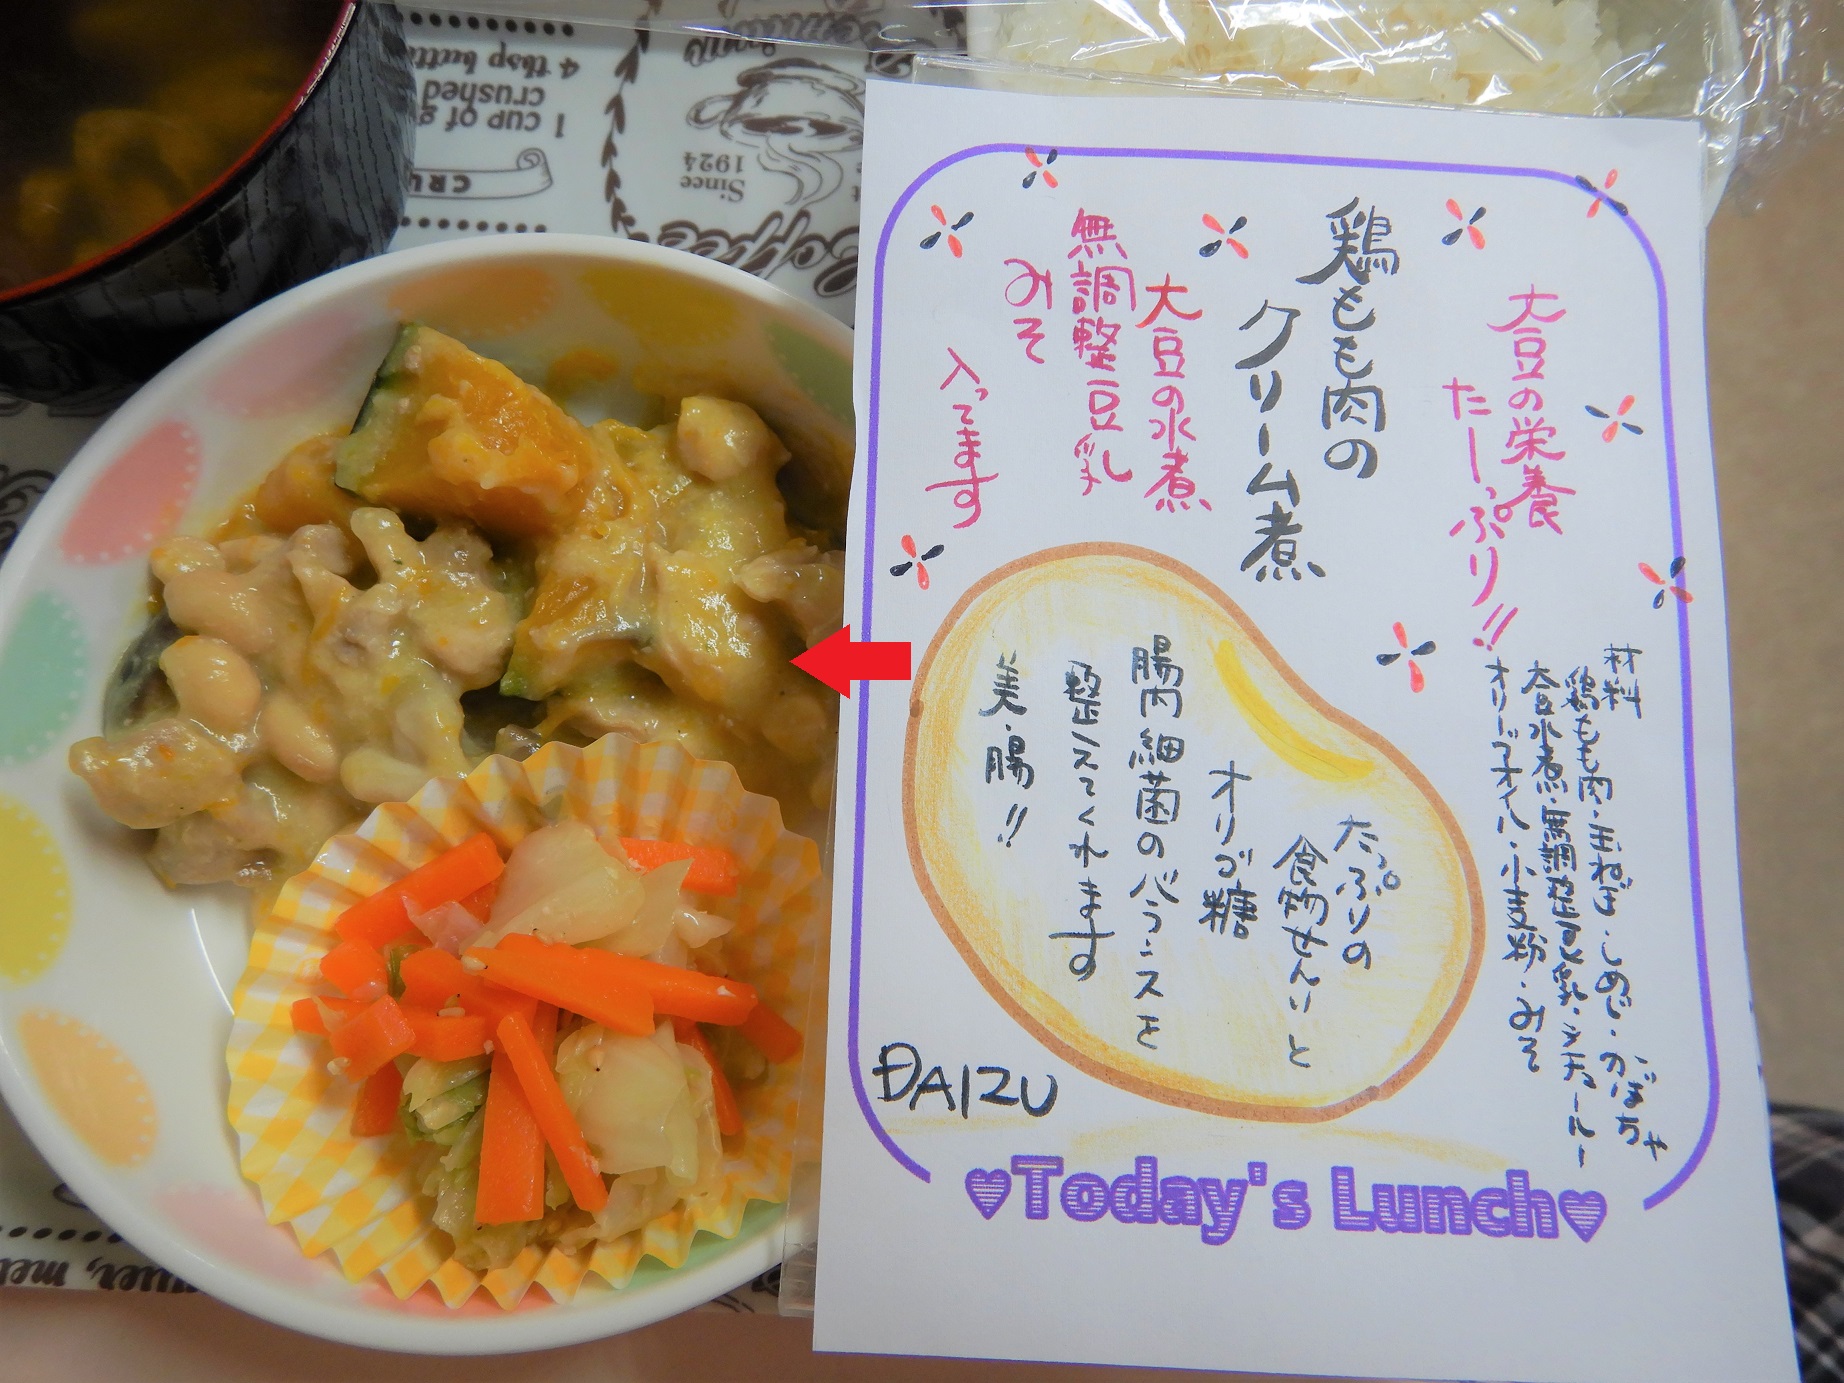 大豆の栄養
たーっぷり!!
鶏もも肉の
クリーム煮
大豆の水煮
無調整豆乳
みそ
入ってます
材料
鶏もも肉・玉ねぎ・しめじ・かぼちゃ
大豆水煮・無調整豆乳・シチュールー
オリーブオイル・小麦粉・みそ
たっぷりの
食物せんいと
オリゴ糖
腸内細菌のバランスを
整えてくれます
美・腸!!
DAIZU
♥Today's Lunch♥
4 tbsp butt
crushed
1 cup of g
CRU
Since
1924
Coffee